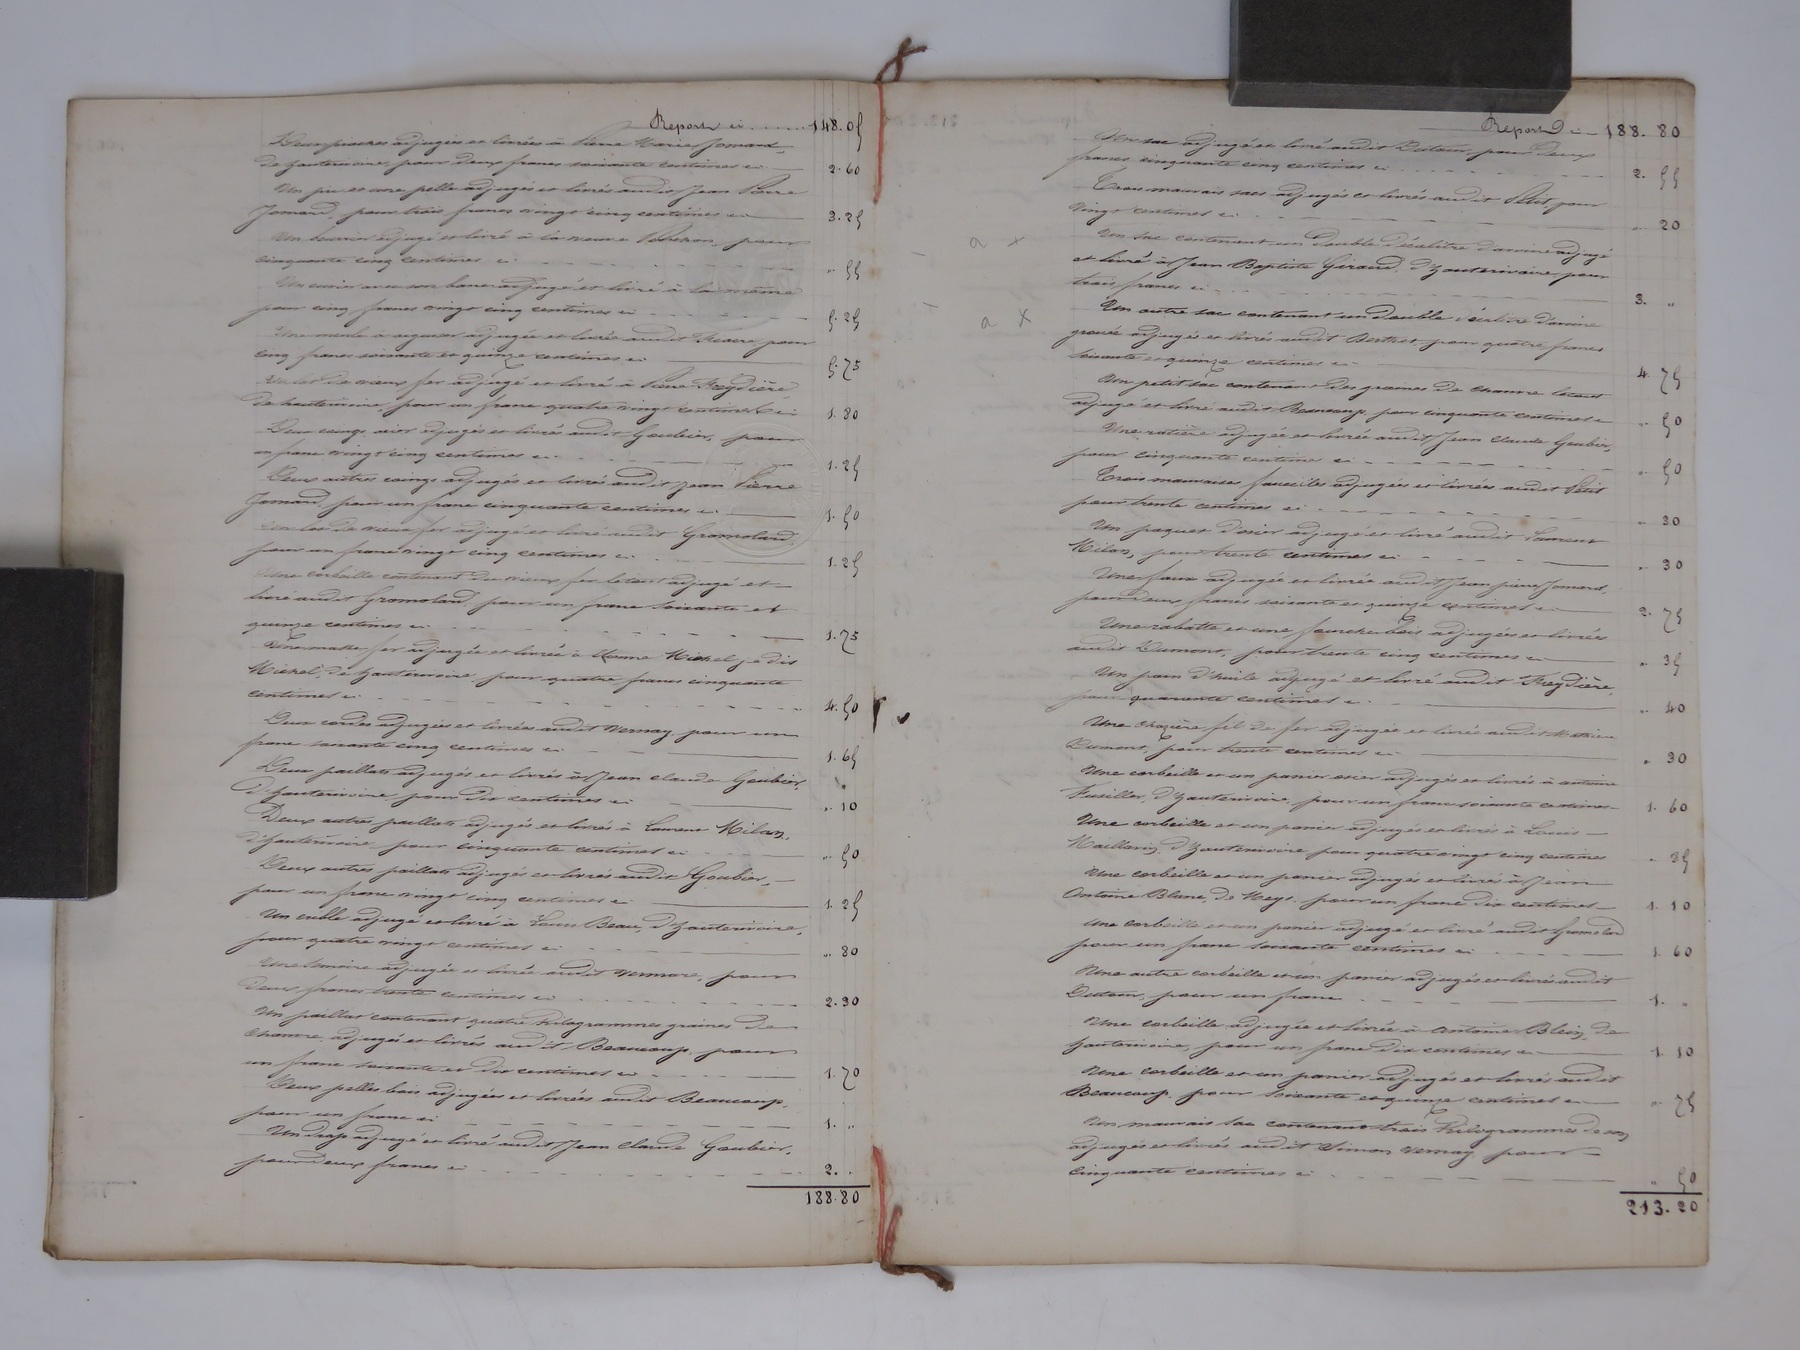 Report ci ..... 148.05
Deux pioches adjugées et livrées à Pierre Marie Jomard,
de hauterivoire, pour deux francs soixante centimes ci 2.60
Un pic et une pelle adjugés et livrés audit Jean Pierre
Jomard, pour trois francs vingt cinq centimes ci 3.25
Un adjugé et livré à la veuve pour
cinquante cinq centimes ci „ 55
Un cuvier avec son banc adjugé et livré à la même
pour cinq francs vingt cinq centimes ci 5.25
Une meule à aiguiser adjugée et livrée audit pour
cinq francs soixante et quinze centimes ci 5.75
Un lot de vieux fer adjugé et livré à Pierre Freydière
de hauterivoire, pour un franc quatre vingt centimes ci 1.80
Deux coings adjugés et livrés audit Goubier, pour
un franc vingt cinq centimes ci 1.25
Deux autres coings adjugés et livrés audit Jean Pierre
Jomard, pour un franc cinquante centimes ci 1.50
Un lot de vieux fer adjugé et livré audit Gromoland
pour un franc vingt cinq centimes ci 1.25
Une corbeille contenant du vieux fer le tout adjugé et
livré audit Gromoland pour un franc soixante et
quinze centimes ci 1.75
fer adjugée et livrée à Michel je dis
Michel, de hauterivoire pour quatre francs cinquante
centimes ci 4.50
Deux cordes adjugées et livrées audit Vernay pour un
franc soixante cinq centimes ci 1.65
Deux paillats adjugés et livrés à Jean Claude Goubier,
d'hauterivoire, pour dix centimes ci „ 10
Deux autres paillats adjugés et livrés à Laurent Milan,
d'hauterivoire pour cinquante centimes ci „ 50
Deux autres paillats adjugés et livrés audit Goubier,
pour un franc vingt cinq centimes ci 1.25
Un crible adjugé et livré à Louis Beau, d'hauterivoire,
pour quatre vingt centimes ci „ 80
Une adjugée et livrée audit pour
deux francs trente centimes ci 2.30
Un paillat contenant quatre kilogrammes graines de
chanvre, adjugés et livrés audit Beaucoup, pour
un franc soixante et dix centimes ci 1.70
Deux pelles bois adjugées et livrées audit Beaucoup,
pour un franc ci 1. „
Un drap adjugé et livré audit Jean Claude Goubier,
pour deux francs ci 2. „
188.80
Report ci 188.80
Un sac adjugé et livré audit pour deux
francs cinquante cinq centimes ci 2.55
Trois mauvais sacs adjugés et livrés audit Petit, pour
vingt centimes ci „ 20
Un sac contenant un double décalitre d'avoine adjugé
et livré à Jean Baptiste Giraud, d'hauterivoire, pour
trois francs ci 3. „
Un autre sac contenant un double décalitre d'avoine
adjugés et livrés audit Berthet pour quatre francs
soixante et quinze centimes ci 4.75
Un petit sac contenant des graines de chanvre le tout
adjugé et livré audit Beaucoup, pour cinquante centimes ci „ 50
Une ratière adjugée et livrée audit Jean Claude Goubier,
pour cinquante centimes ci „ 50
Trois mauvaises faucilles adjugées et livrées audit Petit
pour trente centimes ci „ 30
Un paquet d'osier adjugé et livré audit Laurent
Milan, pour trente centimes ci „ 30
Une faux adjugée et livrée audit Jean pierre Jomard,
pour deux francs soixante et quinze centimes ci 2.75
Une rabatte et une fourche bois adjugées et livrées
audit Dumont, pour trente cinq centimes ci „ 35
Un pain d'huile adjugé et livré audit Freydière,
pour quarante centimes ci „ 40
Une fil de fer adjugée et livrée audit Mathieu
Dumont, pour trente centimes ci „ 30
Une corbeille et un panier osier adjugés et livrés à antoine
d'hauterivoire, pour un franc soixante centimes 1.60
Une corbeille et un panier adjugés et livrés à Louis
d'hauterivoire pour quatre vingt cinq centimes „ 85
Une corbeille et un panier adjugés et livrés à Jean
Antoine Blanc, de Meys, pour un franc dix centimes 1.10
Une corbeille et un panier adjugé et livré audit Gromoland
pour un franc soixante centimes ci 1.60
Une autre corbeille et un panier adjugés et livrés audit
pour un franc 1. „
Une corbeille adjugée et livrée à Antoine Blein, de
hauterivoire, pour un franc dix centimes ci 1.10
Une corbeille et un panier adjugés et livrés audit
Beaucoup, pour soixante et quinze centimes ci „ 75
Un mauvais sac contenant trois kilogrammes de son
adjugés et livrés audit Simon Vernay pour
cinquante centimes ci „ 50
213.20